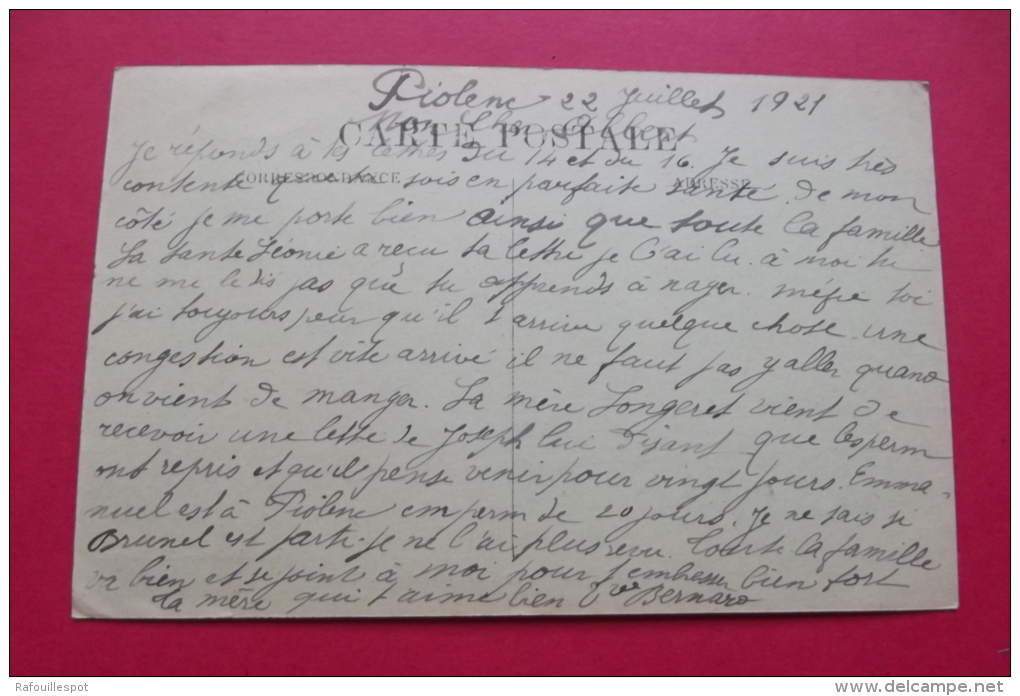 Piolenc 22 Juillet 1921
Mon Cher Albert
CARTE POSTALE
Je réponds à tes lettres du 14 et du 16. Je suis très
CORRESPONDANCE
ADRESSE
contente que tu sois en parfaite santé. de mon
côté je me porte bien ainsi que toute la famille
La tante Léonie a reçu ta lettre je l'ai lu. à moi tu
ne me le dis pas que tu apprends à nager. méfie toi
j'ai toujours peur qu'il t'arrive quelque chose. une
congestion est vite arrivé il ne faut pas y aller quand
on vient de manger. La mère Longeret vient de
recevoir une lettre de Joseph lui disant que les perm
ont repris et qu'il pense venir pour vingt jours. Emma-
nuel est à Piolenc em perm de 20 jours. Je ne sais si
Brunel est parti. je ne l'ai plus revu. Toute la famille
va bien et se joint à moi pour t'embesser bien fort
Ta mère qui t'aime bien Vve Bernard
Rafouillespot
www.delcampe.net